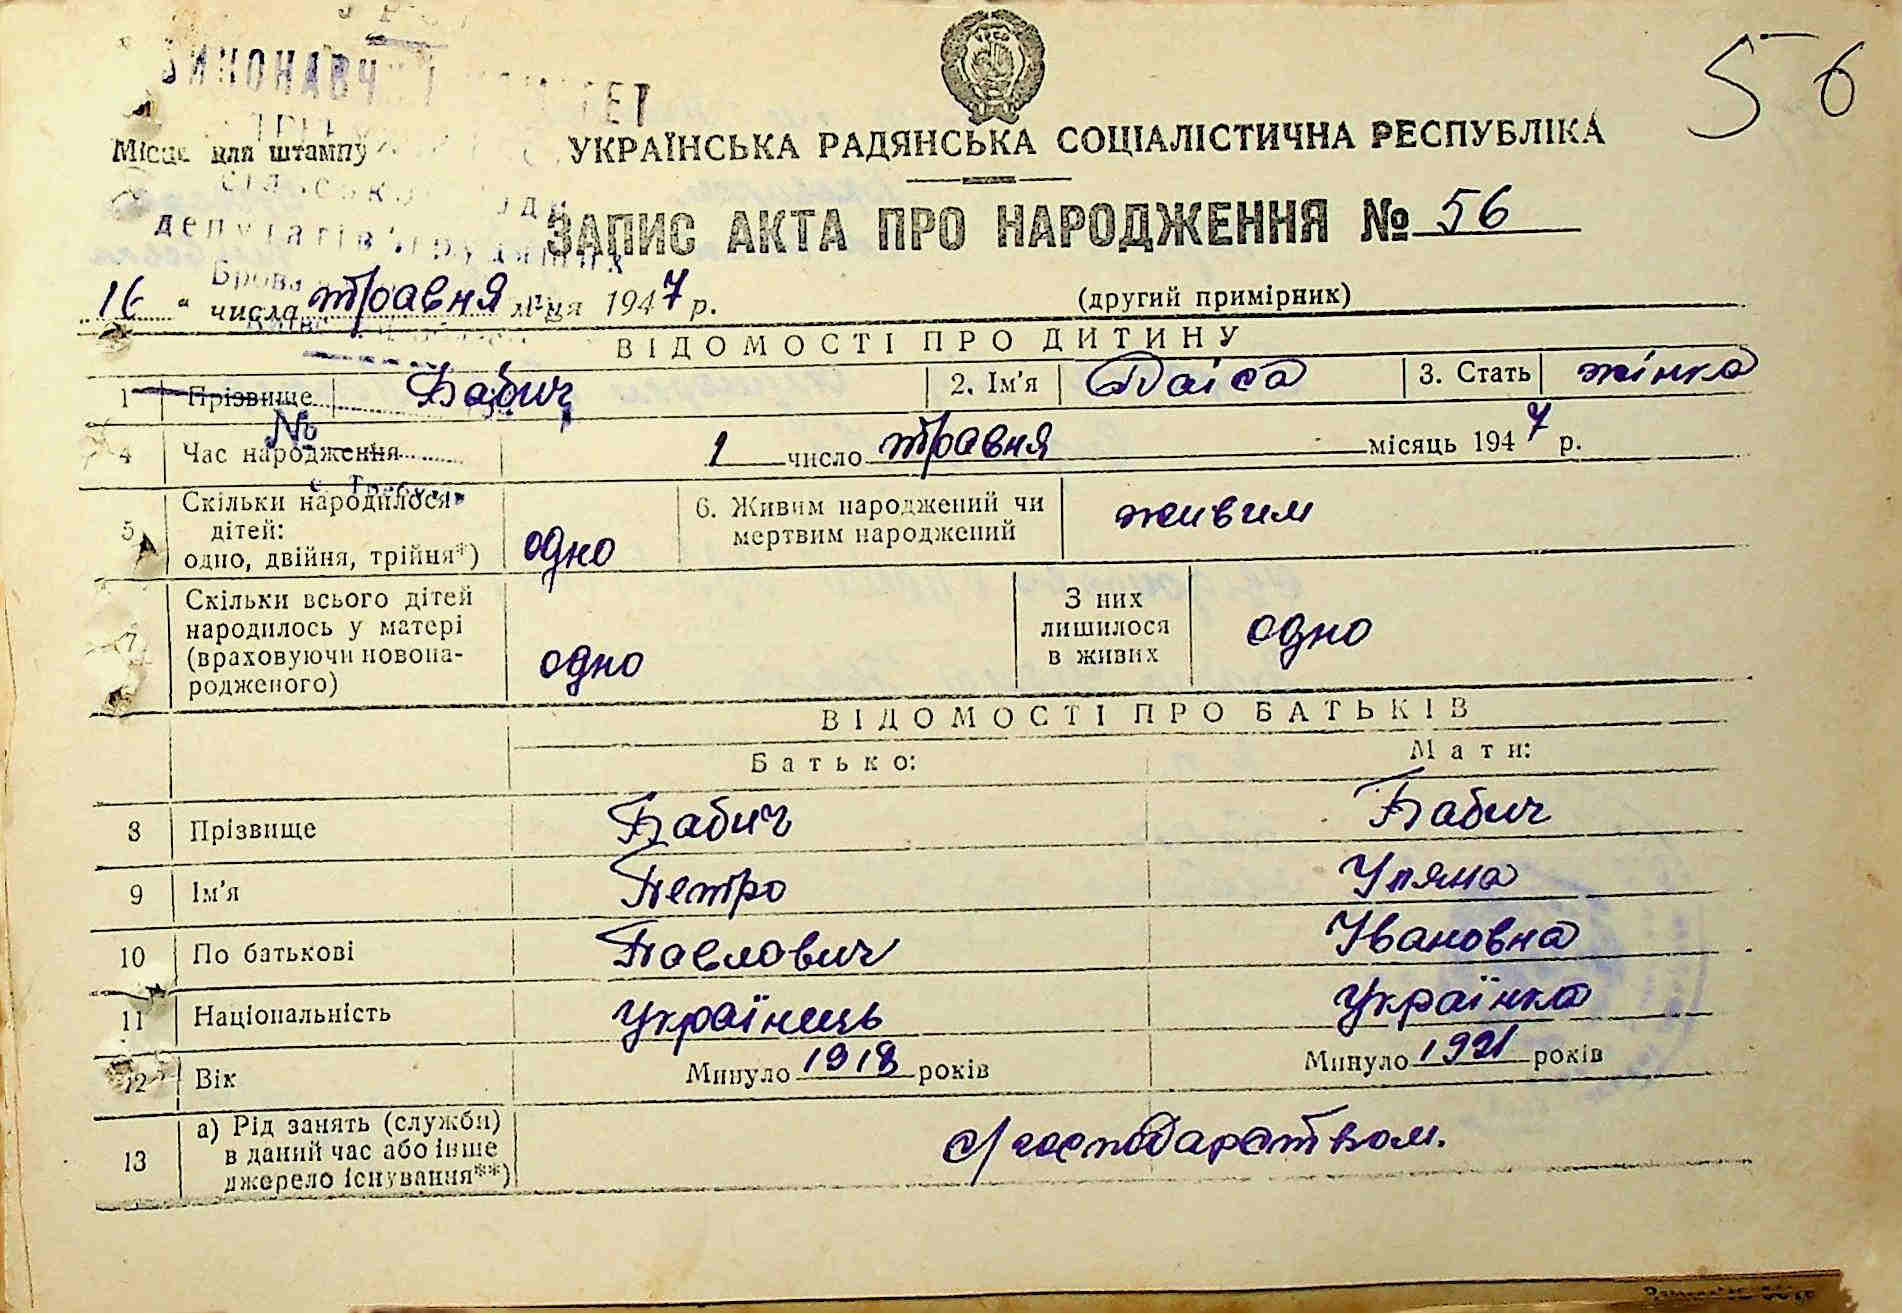 56
ВИКОНАВЧИЙ КОМІТЕТ
Місце для штампу
УКРАЇНСЬКА РАДЯНСЬКА СОЦІАЛІСТИЧНА РЕСПУБЛІКА
депутатів трудящих
ЗАПИС АКТА ПРО НАРОДЖЕННЯ № 56
16 " числа травня м-ця 1947 р.
(другий примірник)
ВІДОМОСТІ ПРО ДИТИНУ
1 Прізвище Бабич 2. Ім'я Раіса 3. Стать жінка
№
4 Час народження 1 число травня місяць 1947 р.
5 Скільки народилося дітей: одно, двійня, трійня*) одно 6. Живим народжений чи мертвим народжений живим
7 Скільки всього дітей народилось у матері (враховуючи новонародженого) одно З них лишилося в живих одно
ВІДОМОСТІ ПРО БАТЬКІВ
Батько: Мати:
8 Прізвище Бабич Бабич
9 Ім'я Петро Уляна
10 По батькові Павлович Івановна
11 Національність Українець Українка
12 Вік Минуло 1918 років Минуло 1921 років
13 а) Рід занять (служби) в даний час або інше джерело існування**) с/господарством.